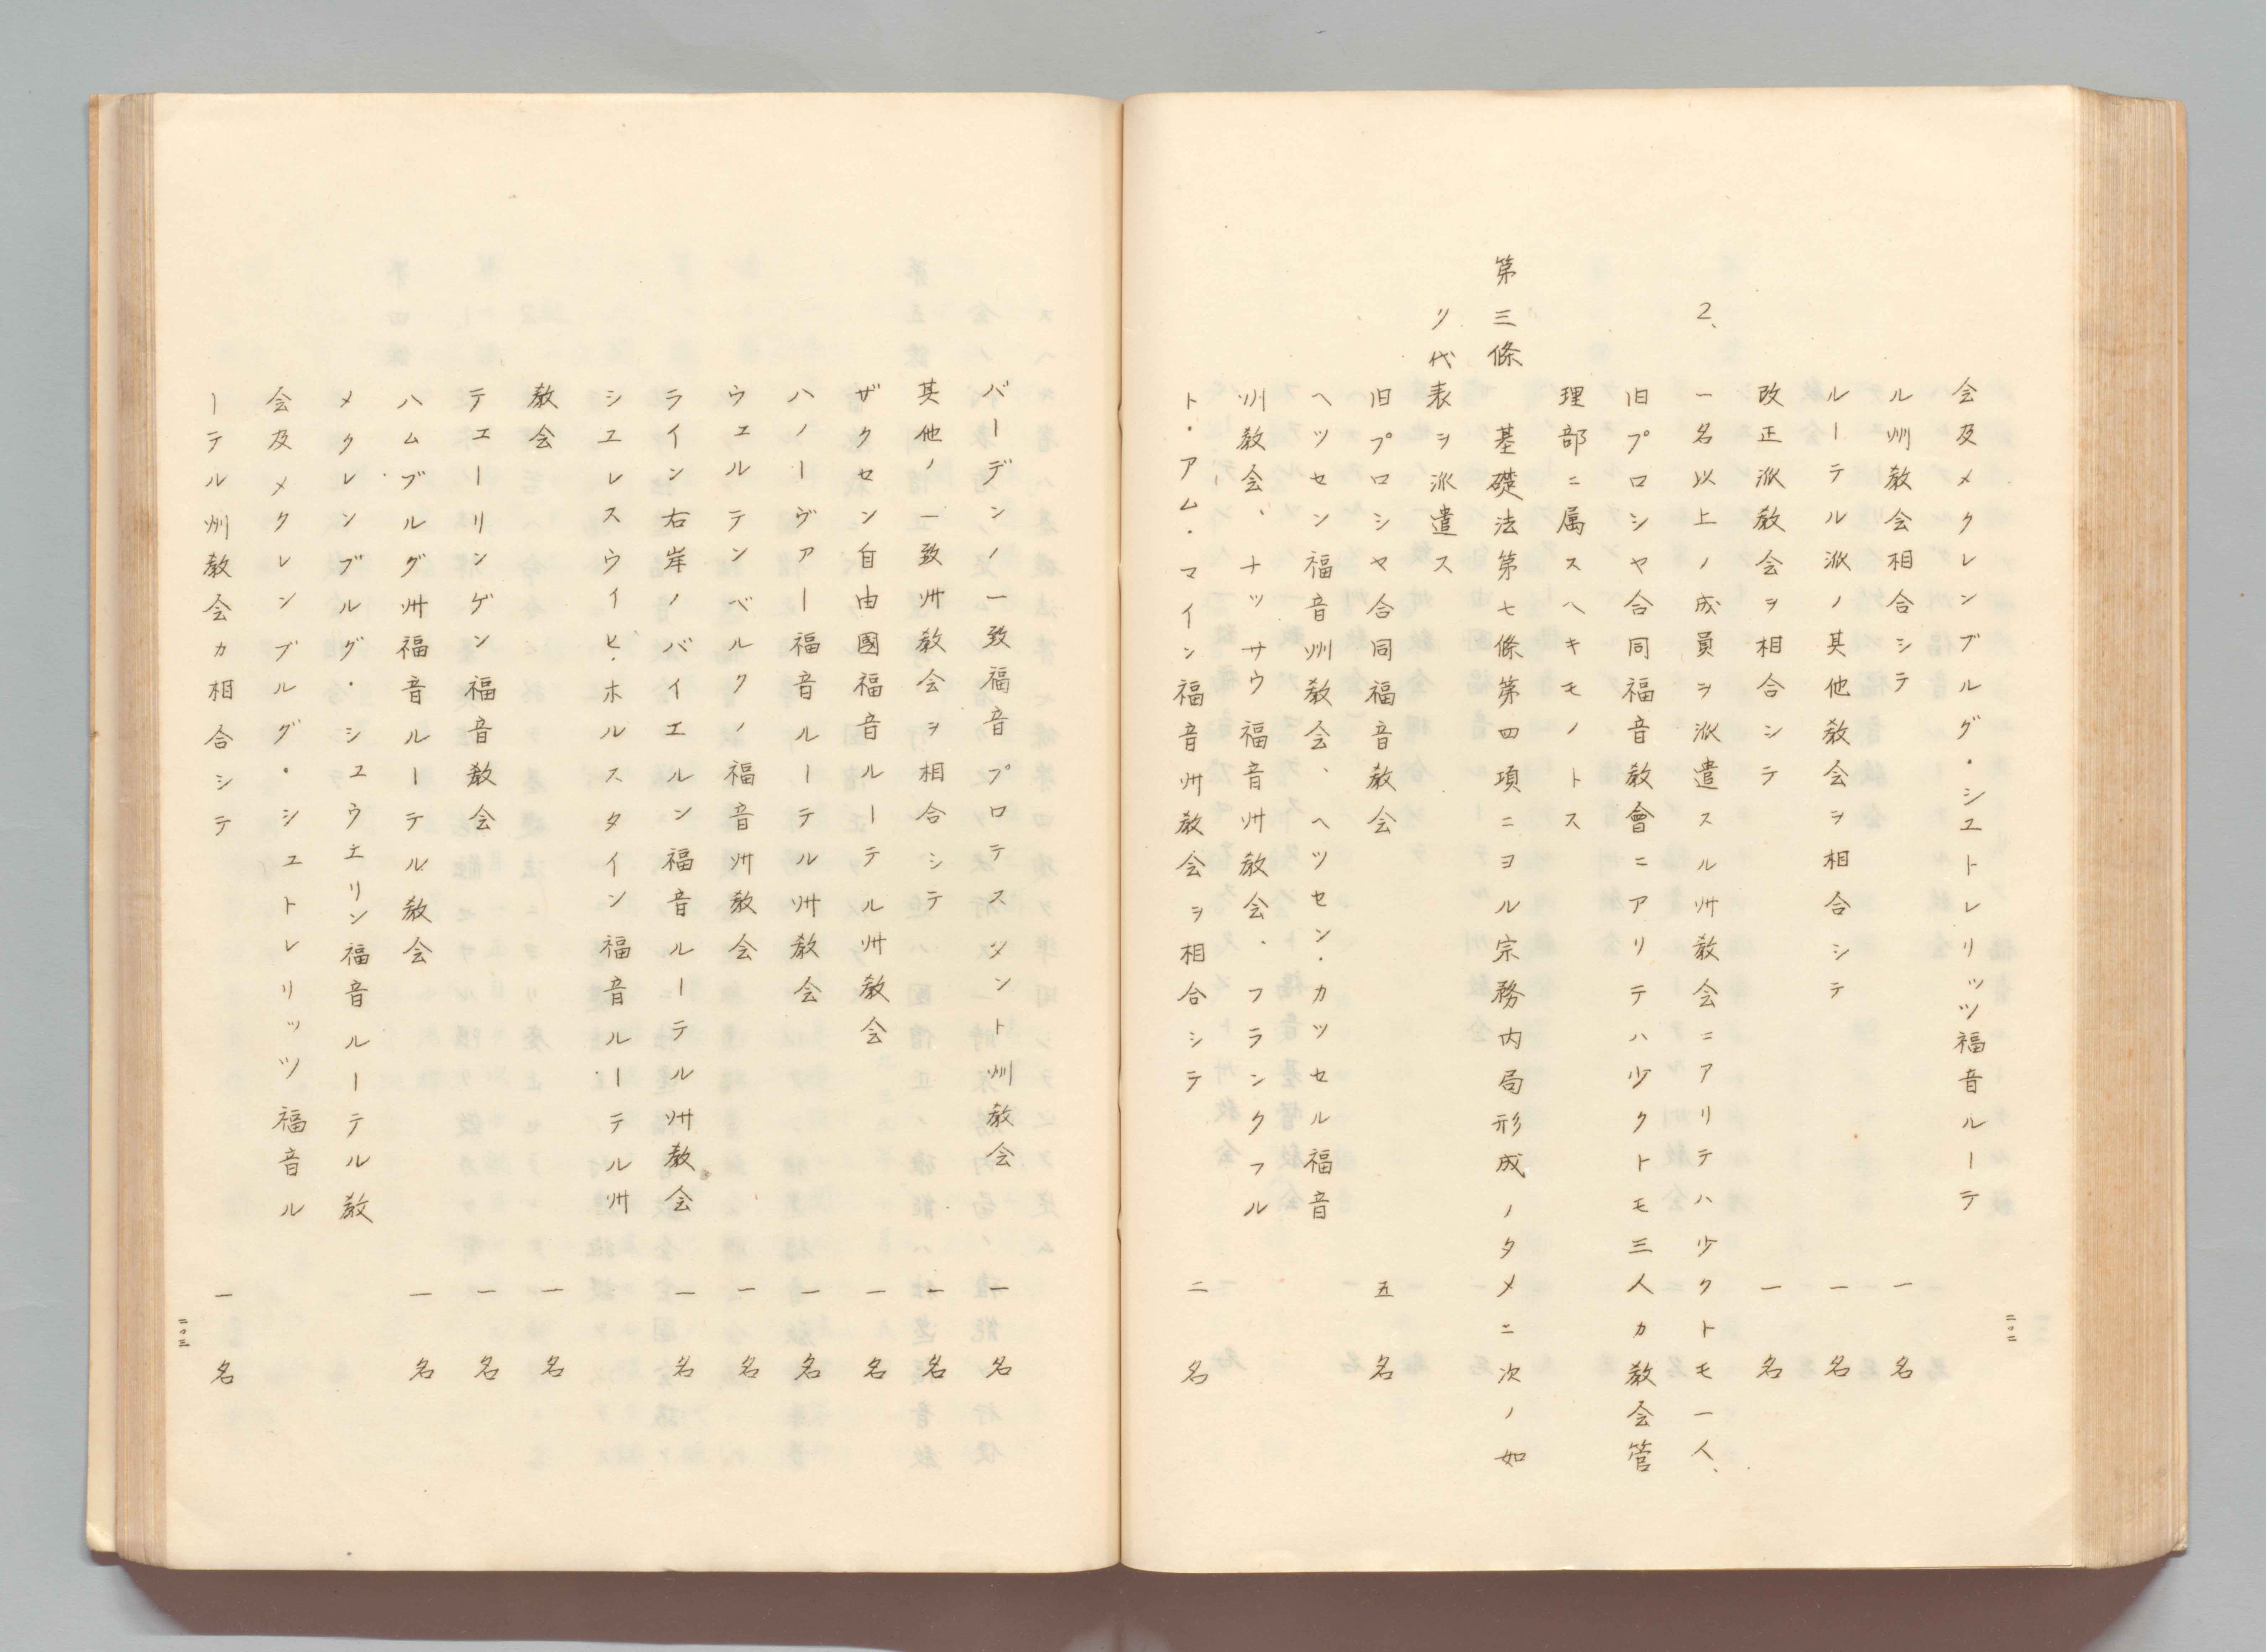 会及メクレンブルグ・シユトレリッツ福音ルーテ
ル州教会相合シテ 一名
ルーテル派ノ其他教会ヲ相合シテ 一名
改正派教会ヲ相合シテ 一名
2、一名以上ノ成員ヲ派遣スル州教会ニアリテハ少クトモ一人、
旧プロシヤ合同福音教會ニアリテハ少クトモ三人カ教会管
理部ニ属スヘキモノトス
第三條 基礎法第七條第四項ニヨル宗務内局形成ノタメニ次ノ如
リ代表ヲ派遣ス
旧プロシヤ合同福音教会 五名
ヘツセン福音州教会、ヘツセン・カツセル福音
州教会、ナツサウ福音州教会、フランクフル
ト・アム・マイン福音州教会ヲ相合シテ 二名
二〇二
バーデンノ一致福音プロテスタント州教会 一名
其他ノ一致州教会ヲ相合シテ 一名
ザクセン自由國福音ルーテル州教会 一名
ハノーヴアー福音ルーテル州教会 一名
ウエルテンベルクノ福音州教会 一名
ライン右岸ノバイエルン福音ルーテル州教会 一名
シユレスウイヒ・ホルスタイン福音ルーテル州
教会 一名
テユーリンゲン福音教会 一名
ハムブルグ州福音ルーテル教会 一名
メクレンブルグ・シユウエリン福音ルーテル教
会及メクレンブルグ・シユトレリッツ福音ル
ーテル州教会カ相合シテ 一名
二〇三